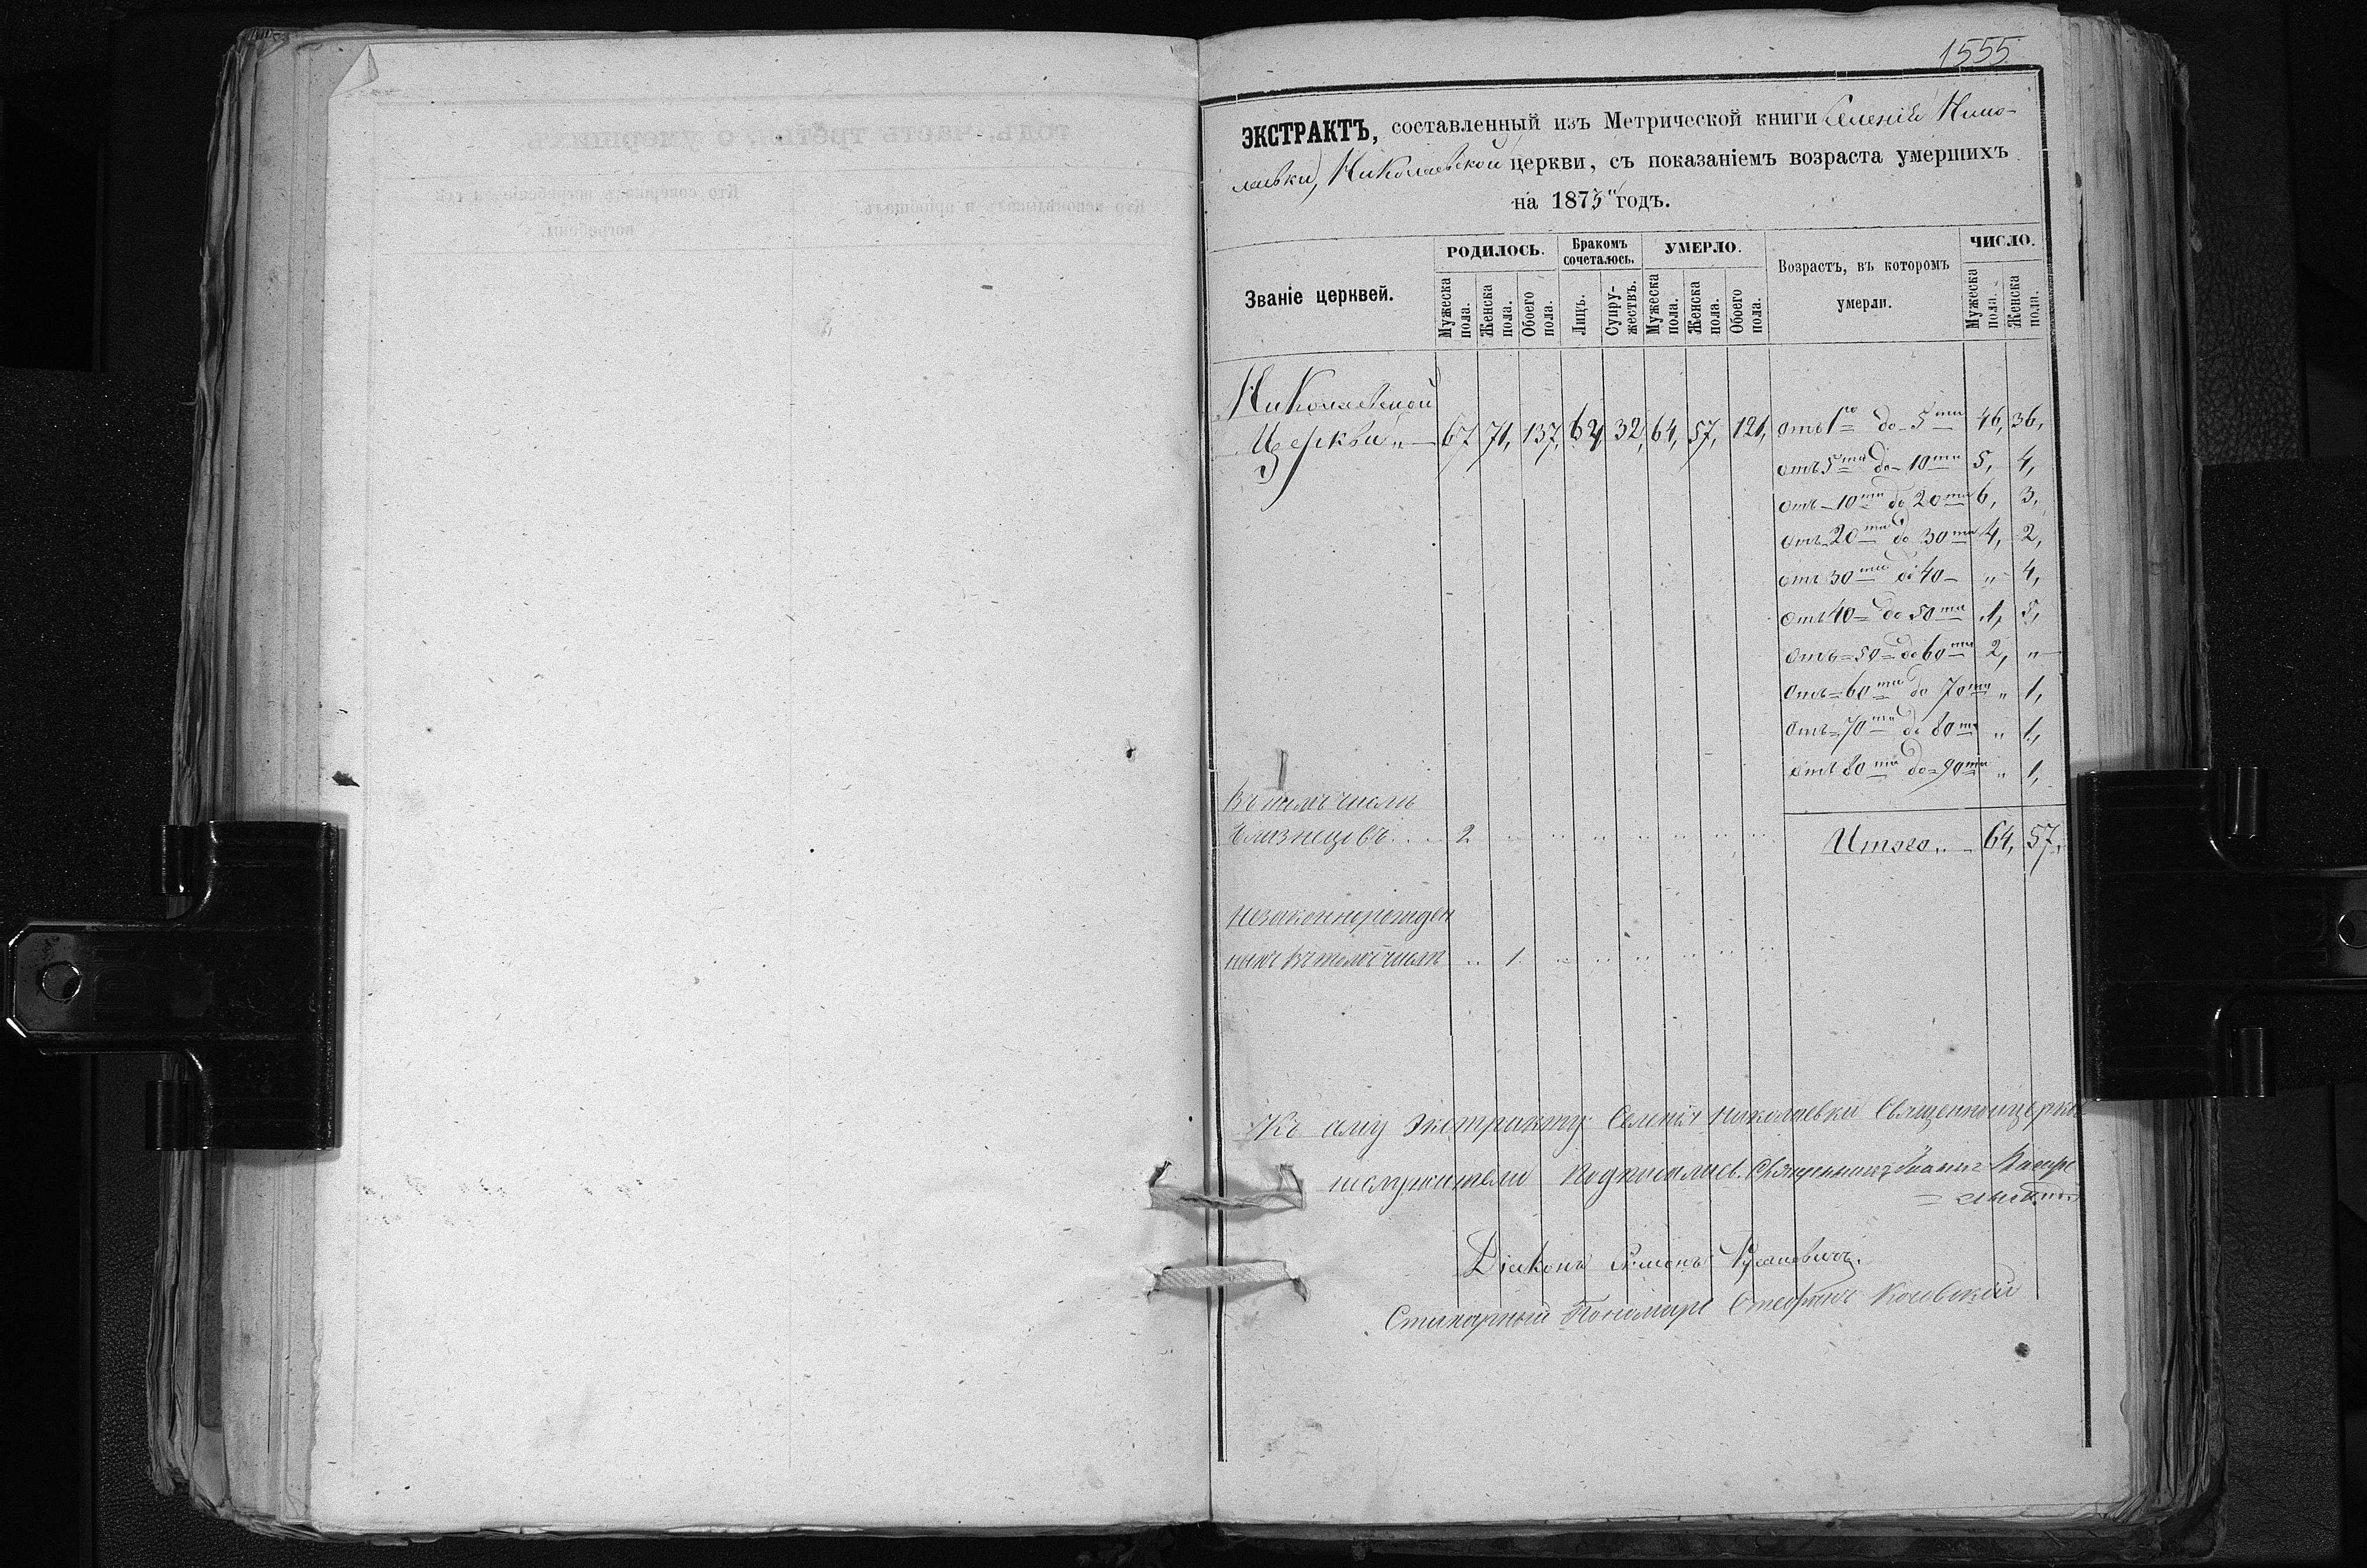 1555
ЭКСТРАКТЪ, составленный изъ Метрической книги Селенія Нико-
лаевки, Николаевской церкви, съ показаніемъ возраста умершихъ
на 1873 годъ.
Званіе церквей.
РОДИЛОСЬ.
Мужеска пола.
Женска пола.
Обоего пола.
Бракомъ сочеталось.
Лицъ.
Супружествъ.
УМЕРЛО.
Мужеска пола.
Женска пола.
Обоего пола.
Возрастъ, въ которомъ
умерли.
ЧИСЛО.
Мужеска пола.
Женска пола.
Николаевской
Церкви „ 67 71, 137, 64, 32, 64, 57, 121, отъ 1го до 5ти 46, 36,
отъ 5ти до 10ти 5, 4,
отъ 10ти до 20ти 6, 3,
отъ 20ти до 30ти 4, 2,
отъ 30ти до 40 „ 4,
отъ 40 до 50ти 1, 5,
отъ 50 до 60ти 2, „
отъ 60ти до 70ти „ 1,
отъ 70ти до 80ти „ 1,
отъ 80ти до 90ти „ 1,
Въ томъ числѣ
близнецовъ 2 „ „ „ „ „ „ „
Итого „ 64, 57,
Незаконнорожден
ныхъ въ томъ числѣ „ 1 „ „ „ „ „ „
Къ сему Экстракту Селенія Николаевки Священноцерко
нослужители подписались. Священникъ Іоаннъ
Діаконъ Симонъ
Стихарный Пономарь Стефанъ
годъ, часть третья, о умершихъ
Кто исповѣдывалъ и пріобщалъ.
Кто совершалъ погребеніе и гдѣ
погребены.